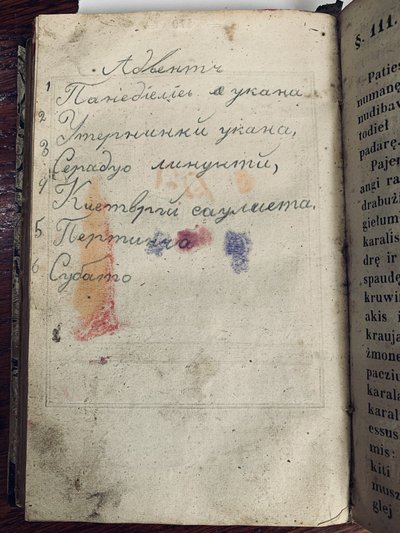 Адвентъ
1 Панедiелiесь укана
2 Утернинки укана,
3 Серадуо линуктй,
4 Кистверги саулиета.
5 Пертинчо
6 Субато
§. 111.
Paties
numanę
nudibav
todieł
padarę.
Pajem
angi ra
drabuži
giełum
karalis
drę ir
spaudę
kruwin
akis i
krauja
żmone
pacziu
karala
karali
essus
mis:
kiti
musz
glej